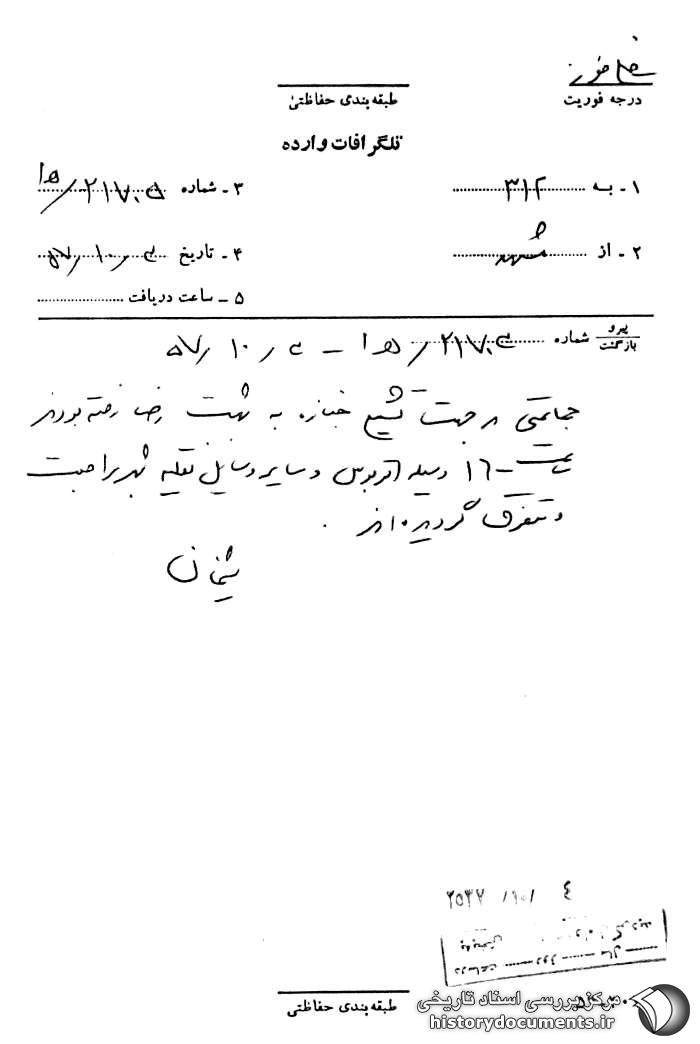 درجه فوریت
طبقه‌بندی حفاظتی
تلگرافات وارده
۱ - به ۳۱۲
۳ - شماره ۲۱۷۰۵/ه‍ ۱
۲ - از مشهد
۴ - تاریخ ۵۷/۱۰/۴
۵ - ساعت دریافت
پیرو
بازگشت شماره ۲۱۷۰۴/ه‍ ۱ - ۵۷/۱۰/۴
جماعتی که جهت تشیع جنازه به بهشت رضا رفته بودند
ساعت ۱۶ وسیله اتوبوس و سایر وسایل نقلیه بشهر مراجعت
و متفرق گردیده‌اند.
شیخان
۲۵۳۷ /۱۰/ ۴
طبقه‌بندی حفاظتی
مرکز بررسی اسناد تاریخی
historydocuments.ir